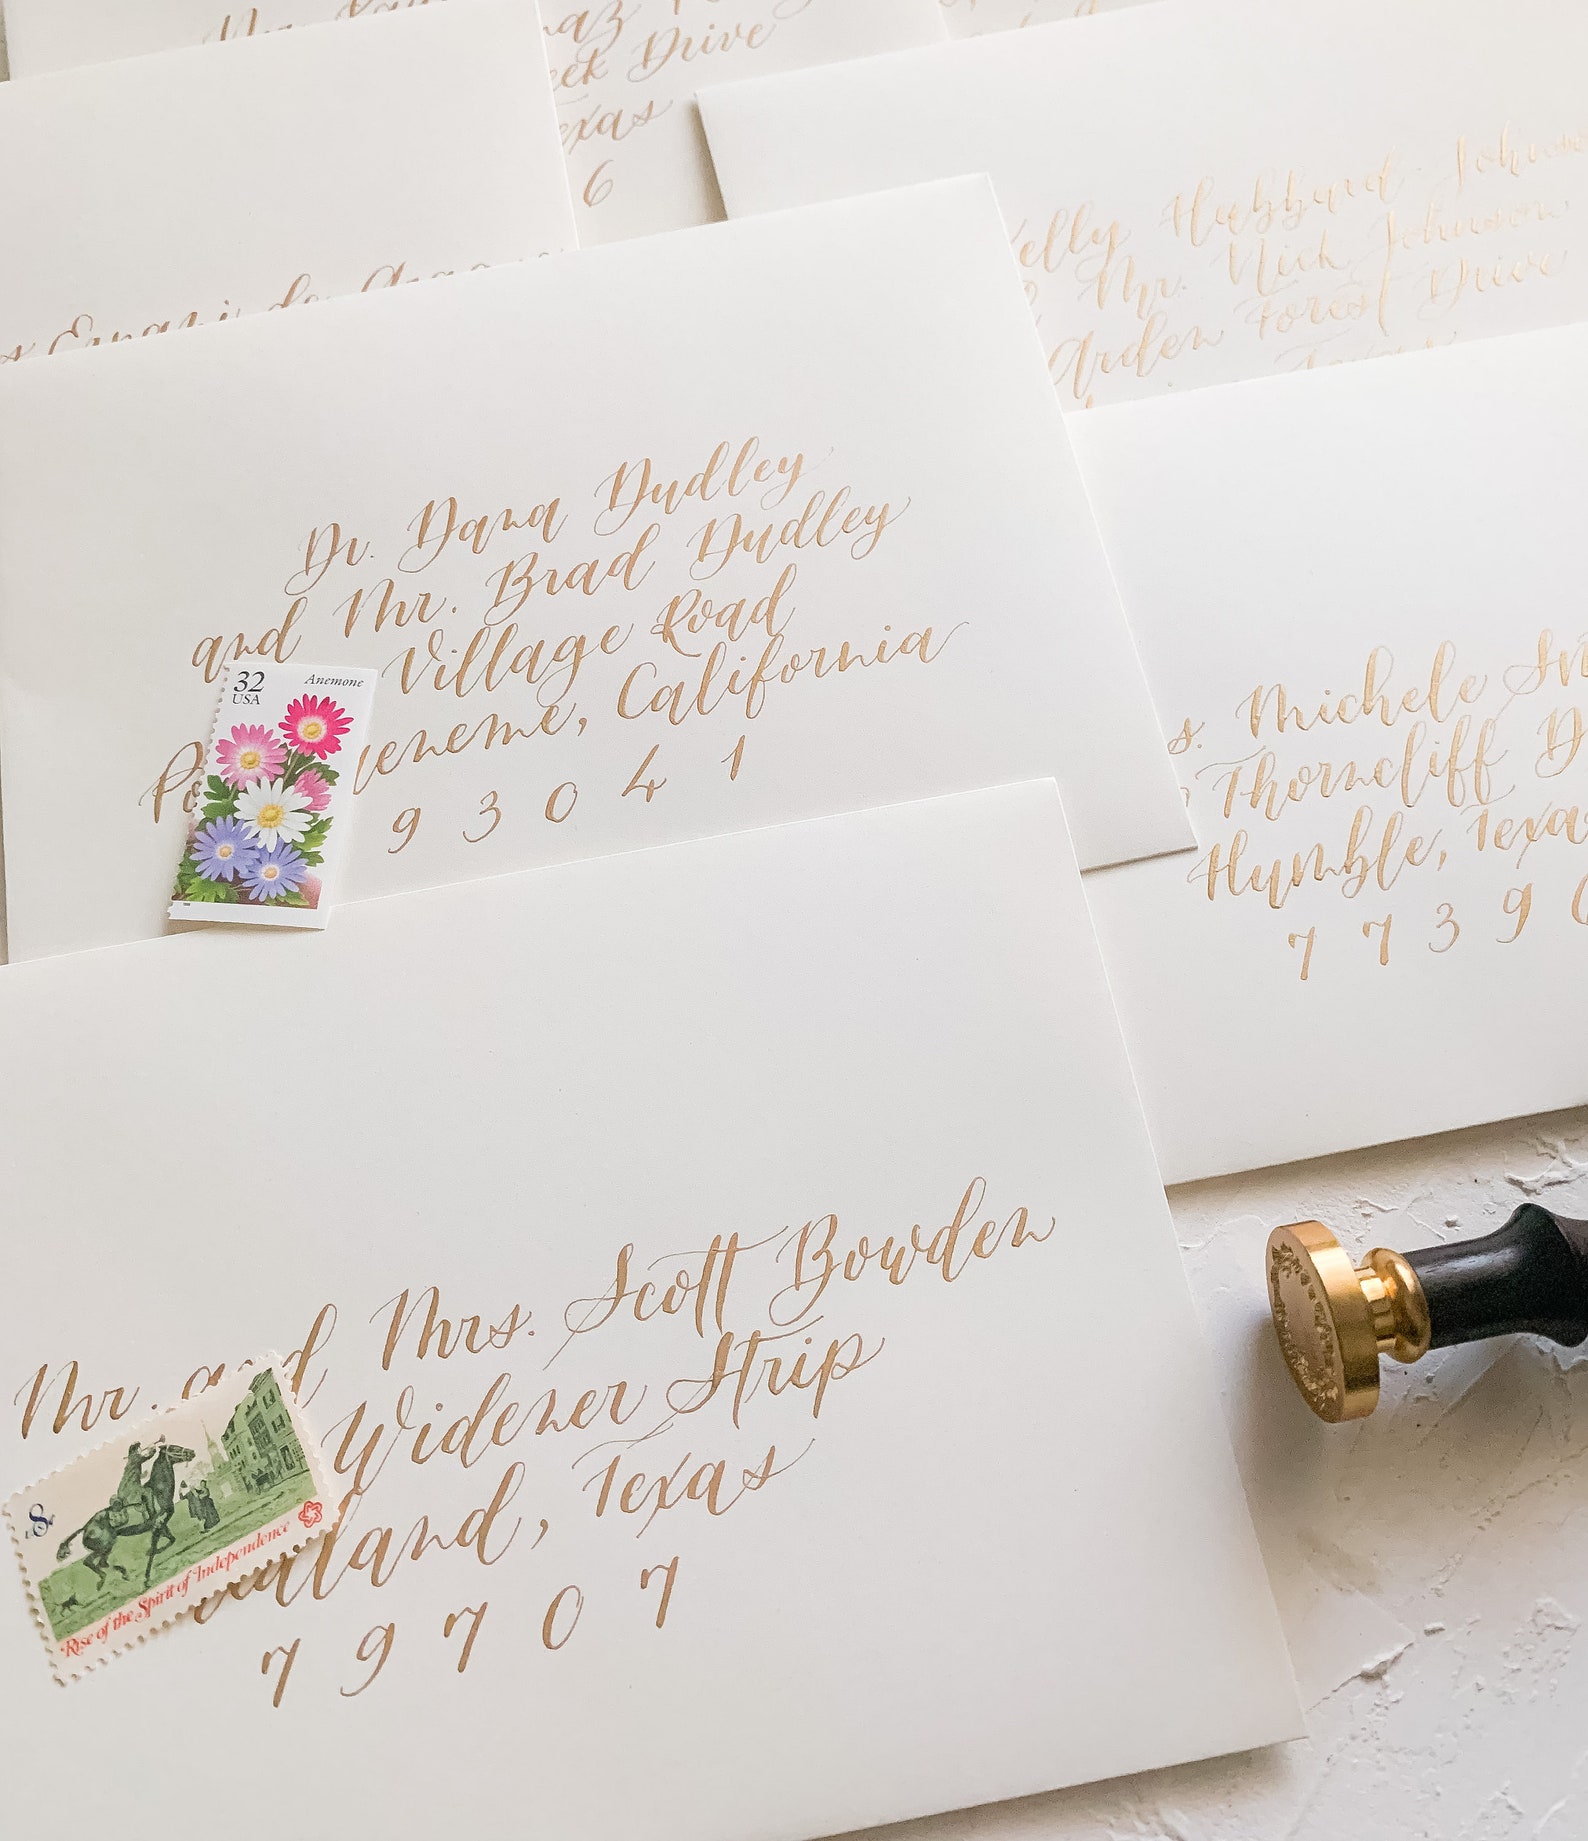 eek Drive
exas
6
elly Hubbard-Johns
Mr. Nick Johnson
Arden Forest Drive
Texas
Dr. Dana Dudley
and Mr. Brad Dudley
Village Road
eneme, California
9 3 0 4 1
32
USA
Anemone
s. Michele
Thorncliff D
Humble, Texas
7 7 3 9 6
Mr. and Mrs. Scott Bowden
Widener Strip
land, Texas
7 9 7 0 7
8c
US
Rise of the Spirit of Independence